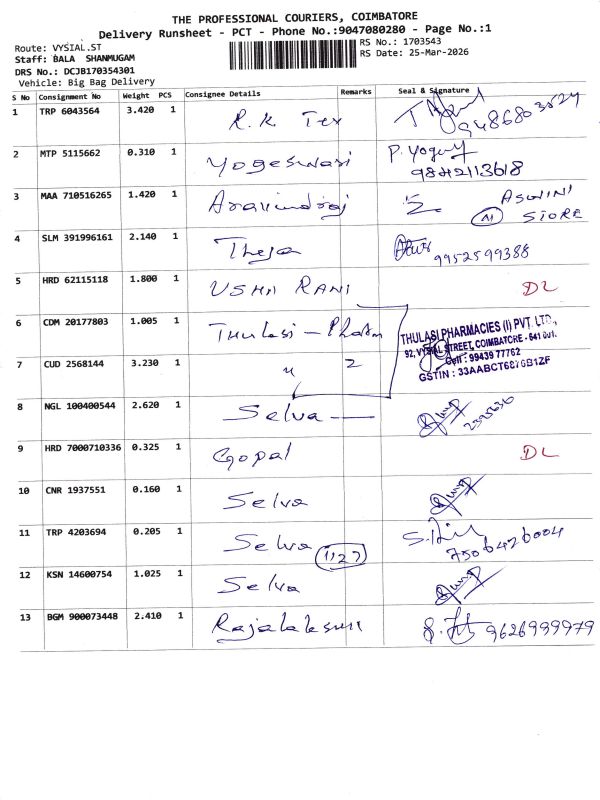 THE PROFESSIONAL COURIERS, COIMBATORE
Delivery Runsheet - PCT - Phone No.:9047080280 - Page No.:1
Route: VYSIAL.ST
RS No.: 1703543
Staff: BALA SHANMUGAM
RS Date: 25-Mar-2026
DRS No.: DCJB170354301
Vehicle: Big Bag Delivery
S No Consignment No Weight PCS Consignee Details Remarks Seal & Signature
1 TRP 6043564 3.420 1 R.K Tex 9486803824
2 MTP 5115662 0.310 1 Yogeswari P. Yogu 9842113618
3 MAA 710516265 1.420 1 Aravindraj ASWINI STORE
4 SLM 391996161 2.140 1 Theja 9952599388
5 HRD 62115118 1.800 1 USHA RANI DL
6 CDM 20177803 1.005 1 Thulasi - Pharm
THULASI PHARMACIES (I) PVT. LTD.,
92, VYSIAL STREET, COIMBATORE - 641 001.
Cell : 99439 77762
GSTIN : 33AABCT6876B1ZF
7 CUD 2568144 3.230 1 " 2
8 NGL 100400544 2.620 1 Selva
9 HRD 7000710336 0.325 1 Gopal DL
10 CNR 1937551 0.160 1 Selva
11 TRP 4203694 0.205 1 Selva 1127 7506426004
12 KSN 14600754 1.025 1 Selva
13 BGM 900073448 2.410 1 Rajalaksmi 9626999979